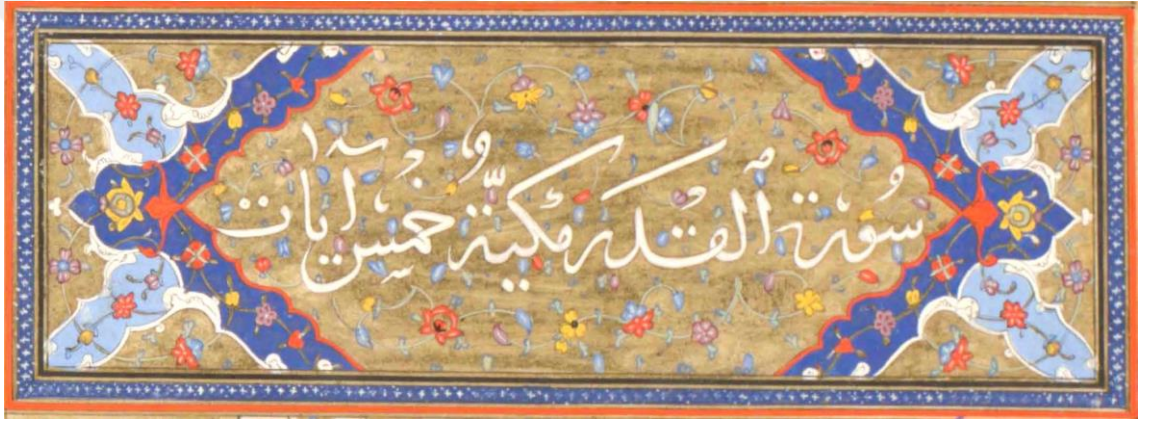 سُورَة ٱلْقَدْر مَكِّيَّة خَمْس آيَات